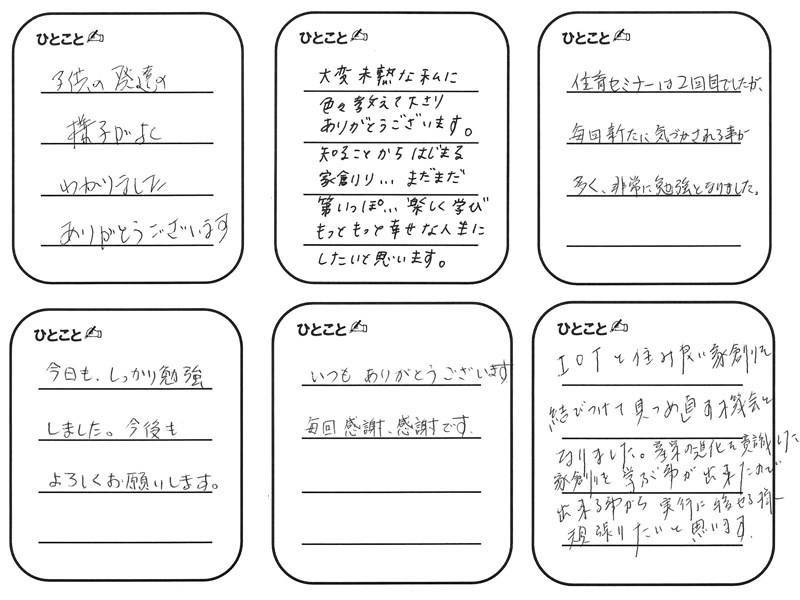 ひとこと
子供の発達の
様子がよく
わかりました
ありがとうございます
ひとこと
大変未熟な私に
色々教えて下さり
ありがとうございます。
知ることからはじまる
家創り… まだまだ
第いっぽ… 楽しく学び
もっともっと幸せな人生に
したいと思います。
ひとこと
住育セミナーは2回目でしたが、
毎回新たに気づかされる事が
多く、非常に勉強となりました。
ひとこと
今日も、しっかり勉強
しました。今後も
よろしくお願いします。
ひとこと
いつも ありがとうございます
毎回感謝、感謝です。
ひとこと
IOTと住み良い家創りを
結びつけて見つめ直す機会と
なりました。産業の進化を意識した
家創りを学ぶ事が出来たので
出来る事から実行に移せる様
頑張りたいと思います。